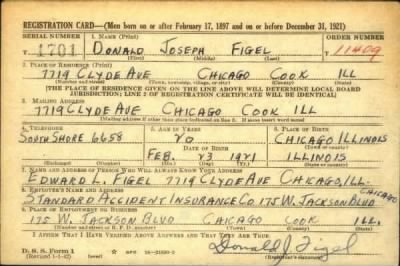 REGISTRATION CARD—(Men born on or after February 17, 1897 and on or before December 31, 1921)
SERIAL NUMBER 1. NAME (Print) ORDER NUMBER
1701 DONALD JOSEPH FIGEL 11409
(First) (Middle) (Last)
2. PLACE OF RESIDENCE (Print)
7719 CLYDE AVE CHICAGO COOK ILL
(Number and street) (Town, township, village, or city) (County) (State)
[THE PLACE OF RESIDENCE GIVEN ON THE LINE ABOVE WILL DETERMINE LOCAL BOARD
JURISDICTION; LINE 2 OF REGISTRATION CERTIFICATE WILL BE IDENTICAL]
3. MAILING ADDRESS
7719 CLYDE AVE CHICAGO COOK ILL.
[Mailing address if other than place indicated on line 2. If same insert word same]
4. TELEPHONE 5. AGE IN YEARS 6. PLACE OF BIRTH
SOUTH SHORE 6658 20 CHICAGO ILLINOIS
DATE OF BIRTH
FEB. 23 1921 ILLINOIS
(Exchange) (Number) (Mo.) (Day) (Yr.) (State or country)
7. NAME AND ADDRESS OF PERSON WHO WILL ALWAYS KNOW YOUR ADDRESS
EDWARD L. FIGEL 7719 CLYDE AVE CHICAGO, ILL.
8. EMPLOYER'S NAME AND ADDRESS
STANDARD ACCIDENT INSURANCE CO. 175 W. JACKSON BLVD CHICAGO
9. PLACE OF EMPLOYMENT OR BUSINESS
175 W. JACKSON BLVD CHICAGO COOK ILL.
(Number and street or R. F. D. number) (Town) (County) (State)
I AFFIRM THAT I HAVE VERIFIED ABOVE ANSWERS AND THAT THEY ARE TRUE.
D. S. S. Form 1
(Revised 1-1-42) (over)
Donald J. Figel